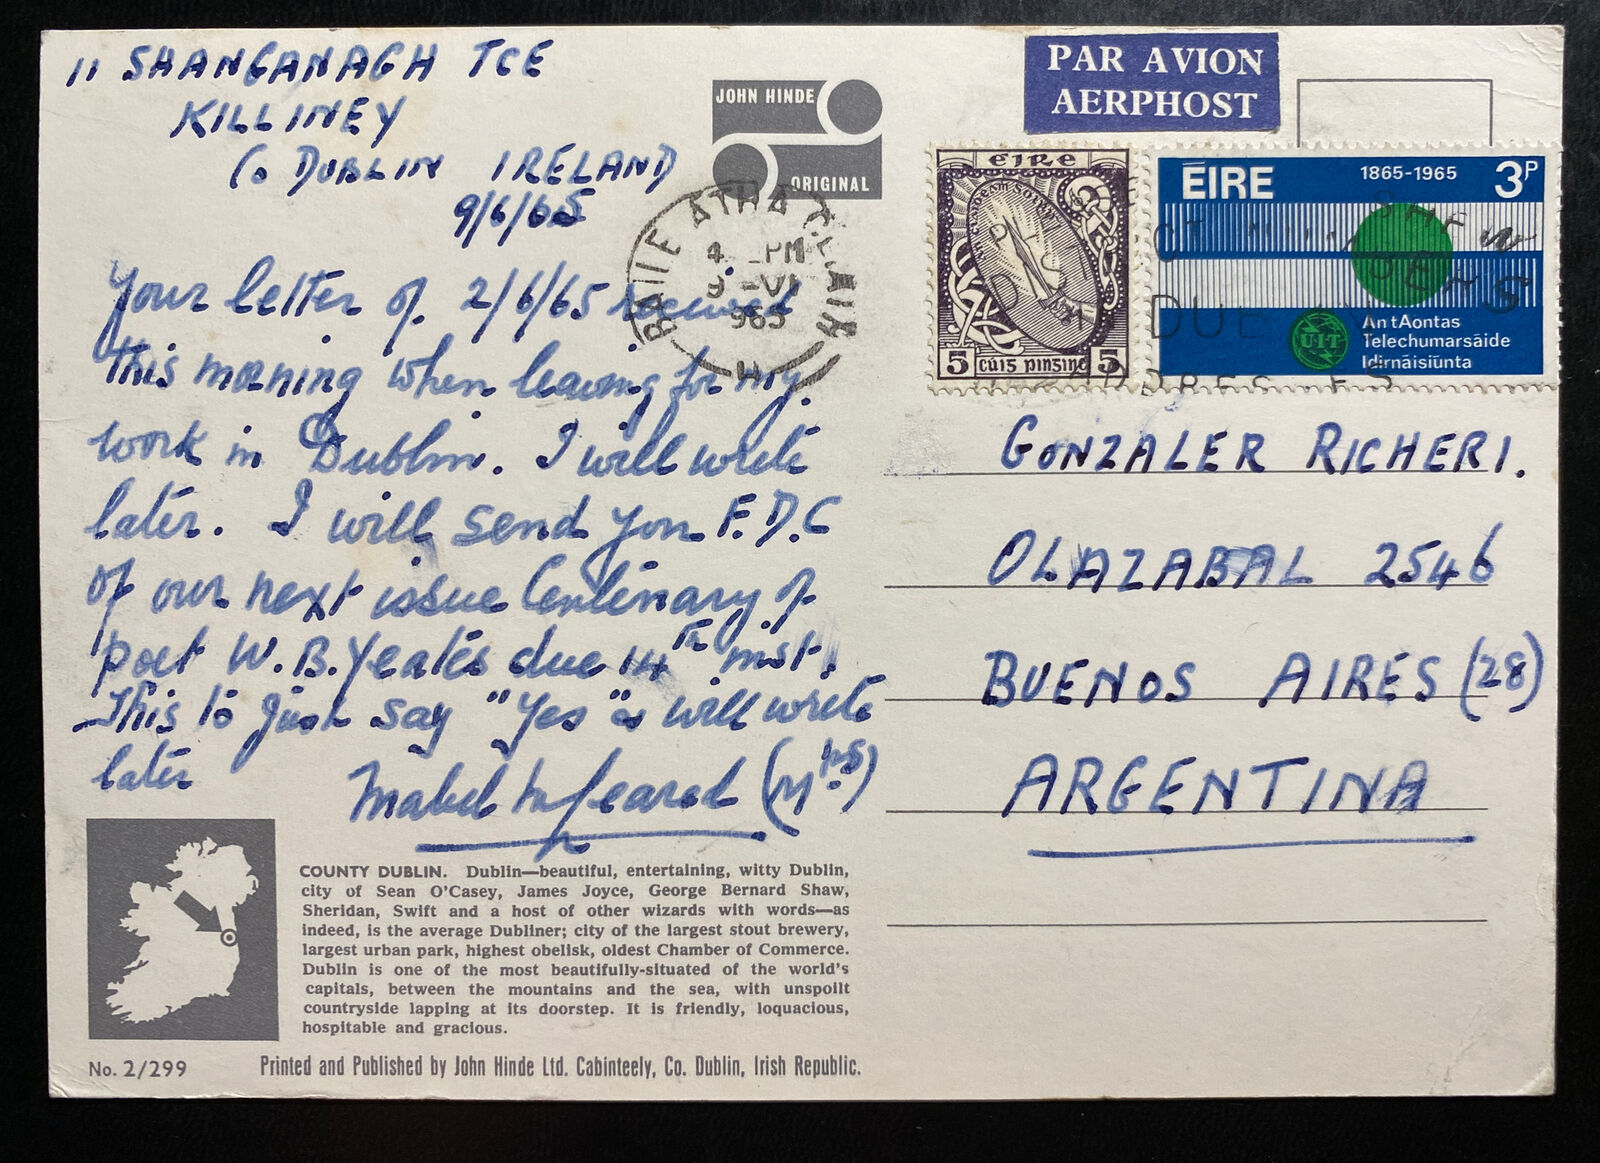 11 SHANGANAGH TCE
KILLINEY
Co DUBLIN IRELAND
9/6/65
Your letter of 2/6/65 received
this morning when leaving for my
work in Dublin. I will write
later. I will send you F.D.C
of our next issue Centenary of
poet W.B. Yeates due 14th inst.
This to just say "Yes" & will write
later
Mabel (Mrs)
JOHN HINDE
ORIGINAL
BAILE ATHA CLIATH
4 PM
9 -VI
965
PAR AVION
AERPHOST
éire
5 cúis pinsine 5
ÉIRE 1865-1965 3P
UIT
An tAontas
Telechumarsáide
Idirnáisiúnta
SHEW
DUBLIN
ADDRESSES
GONZALER RICHERI.
OLAZABAL 2546
BUENOS AIRES (28)
ARGENTINA
COUNTY DUBLIN. Dublin—beautiful, entertaining, witty Dublin,
city of Sean O'Casey, James Joyce, George Bernard Shaw,
Sheridan, Swift and a host of other wizards with words—as
indeed, is the average Dubliner; city of the largest stout brewery,
largest urban park, highest obelisk, oldest Chamber of Commerce.
Dublin is one of the most beautifully-situated of the world's
capitals, between the mountains and the sea, with unspoilt
countryside lapping at its doorstep. It is friendly, loquacious,
hospitable and gracious.
No. 2/299
Printed and Published by John Hinde Ltd. Cabinteely, Co. Dublin, Irish Republic.